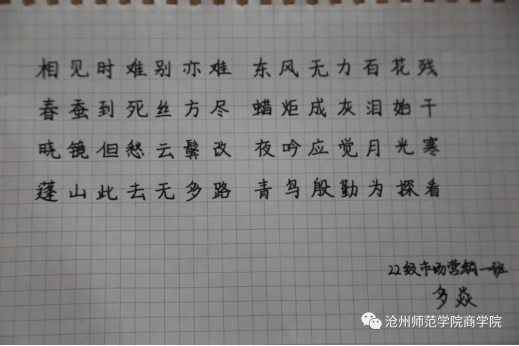 相见时难别亦难 东风无力百花残
春蚕到死丝方尽 蜡炬成灰泪始干
晓镜但愁云鬓改 夜吟应觉月光寒
蓬山此去无多路 青鸟殷勤为探看
22级市场营销一班
多焱
沧州师范学院商学院